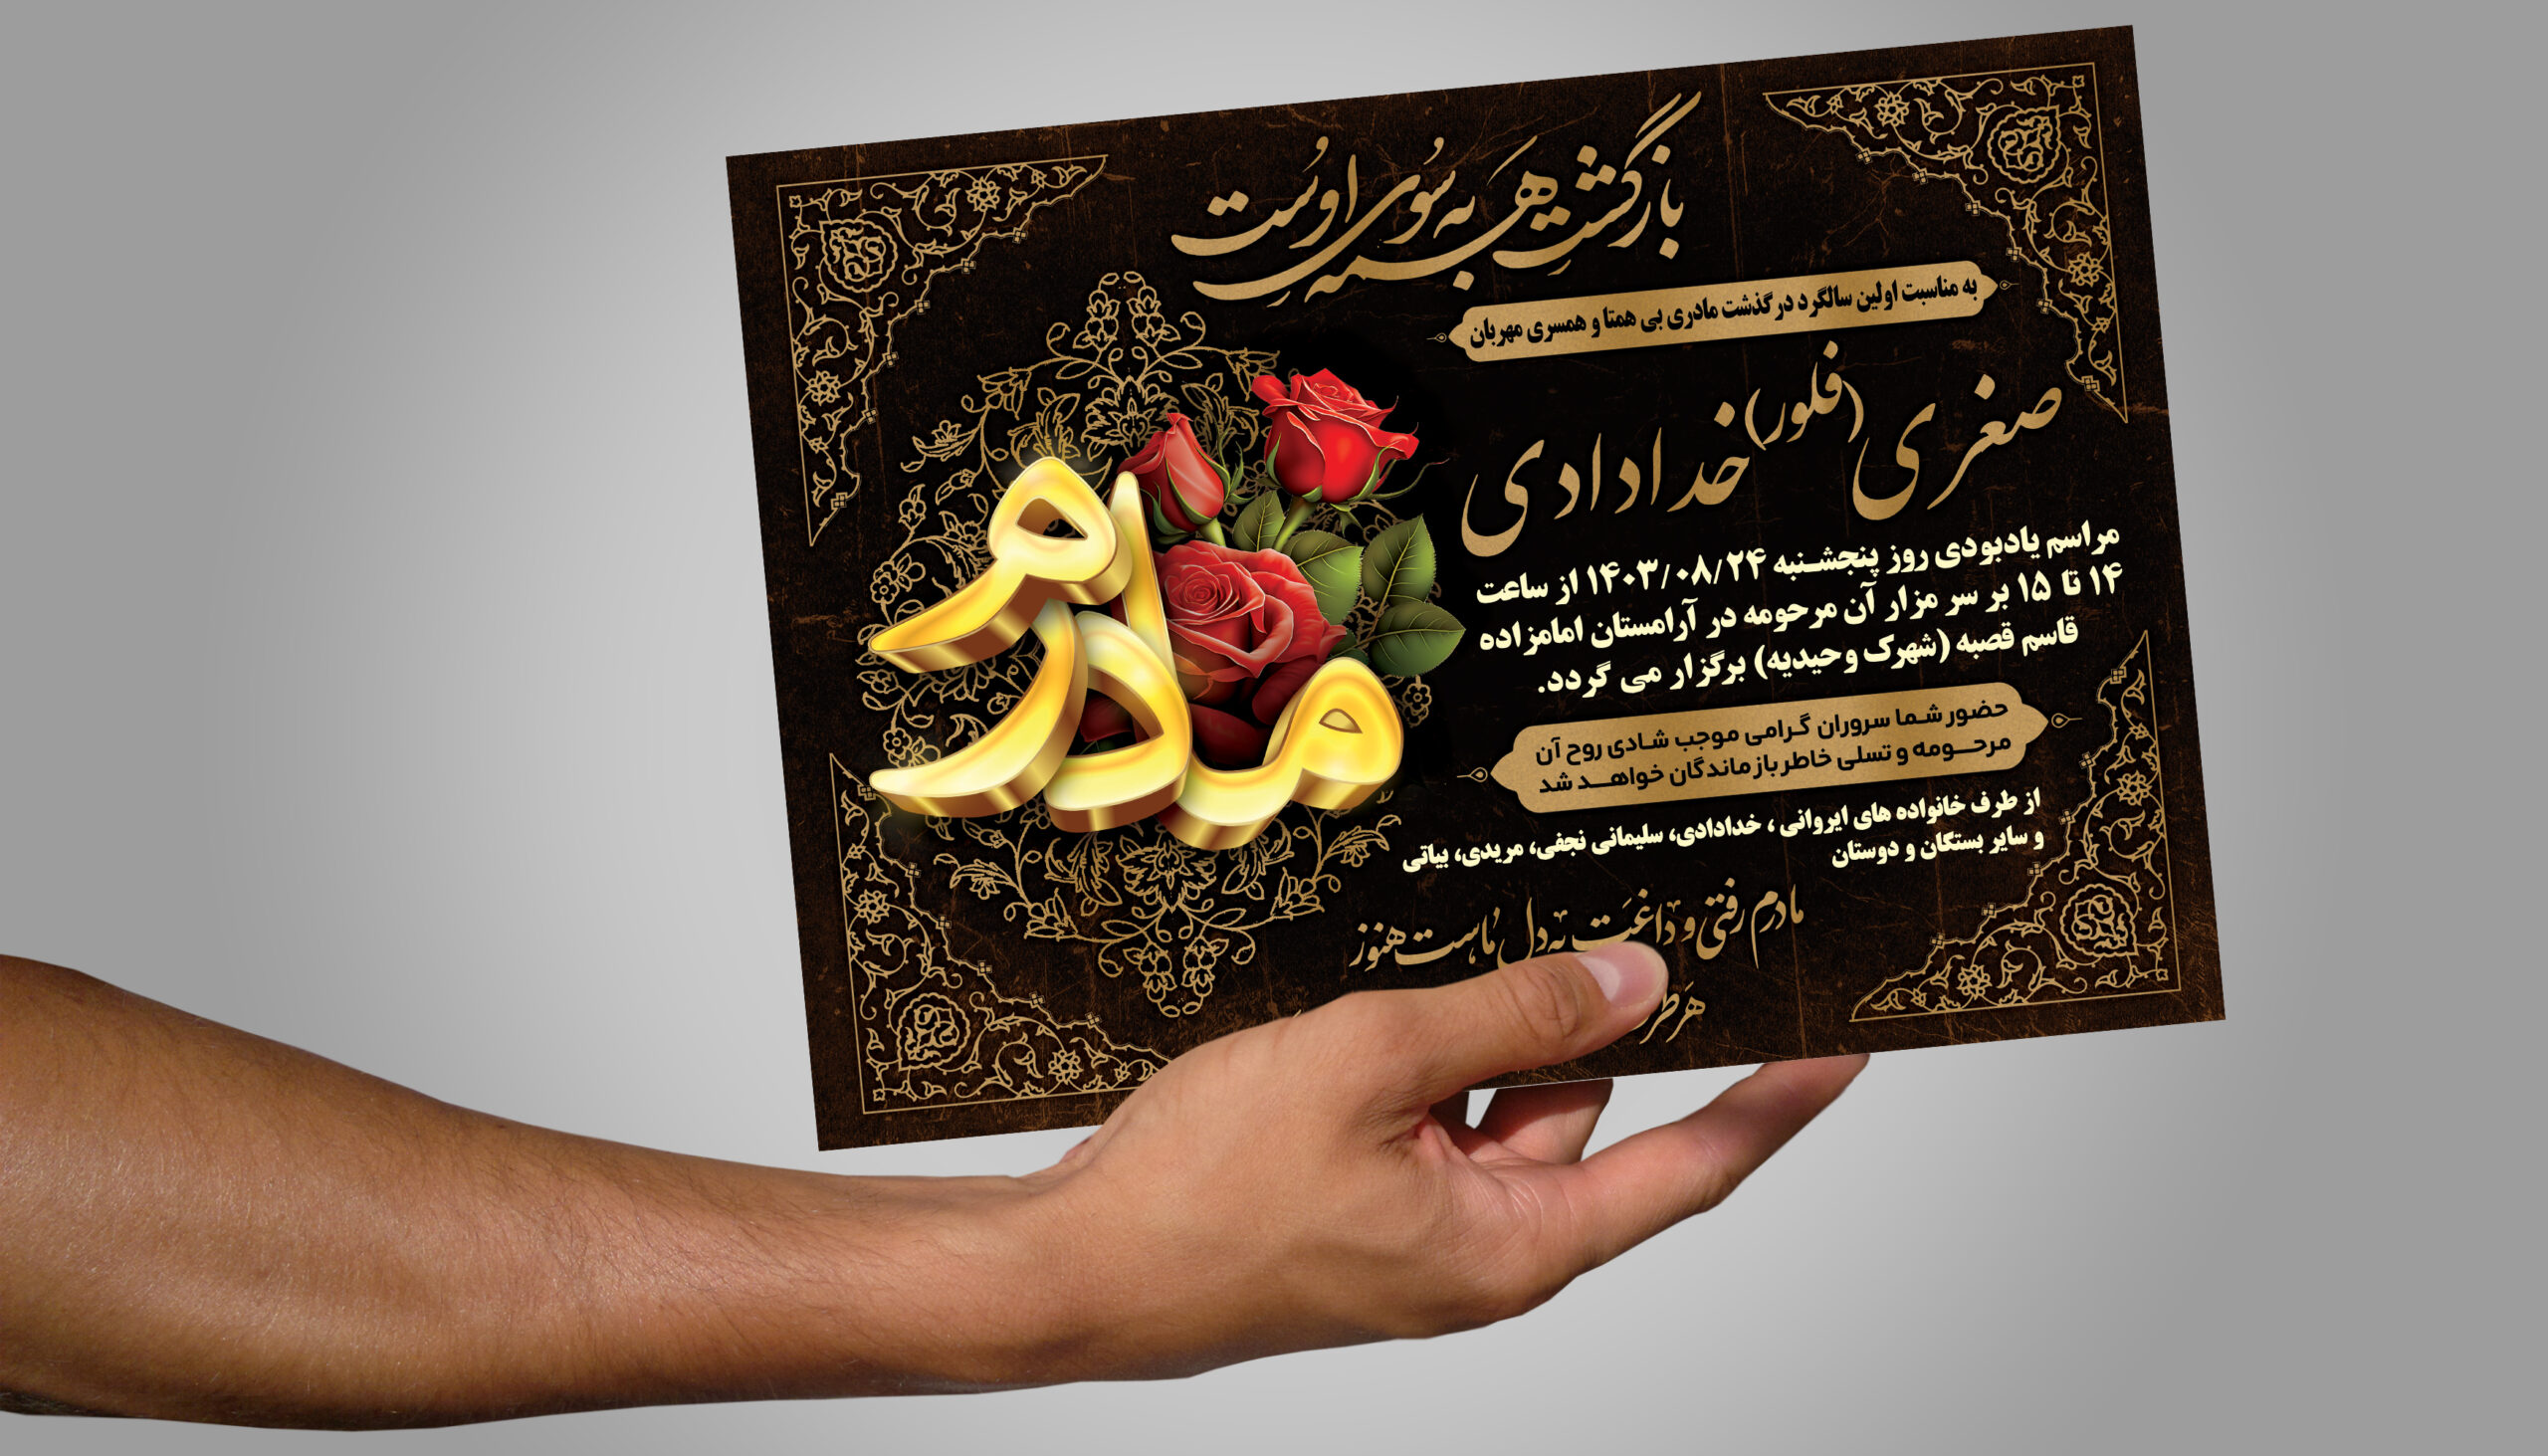 بازگشت همه به سوی اوست
به مناسبت اولین سالگرد درگذشت مادری بی همتا و همسری مهربان
صغری (فلور) خدادادی
مراسم یادبودی روز پنجشنبه ۱۴۰۳/۰۸/۲۴ از ساعت
۱۴ تا ۱۵ بر سر مزار آن مرحومه در آرامستان امامزاده
قاسم قصبه (شهرک وحیدیه) برگزار می گردد.
مادرم
حضور شما سروران گرامی موجب شادی روح آن
مرحومه و تسلی خاطر بازماندگان خواهد شد
از طرف خانواده های ایروانی ، خدادادی، سلیمانی نجفی، مریدی، بیاتی
و سایر بستگان و دوستان
مادرم رفتی و داغت به دل ماست هنوز